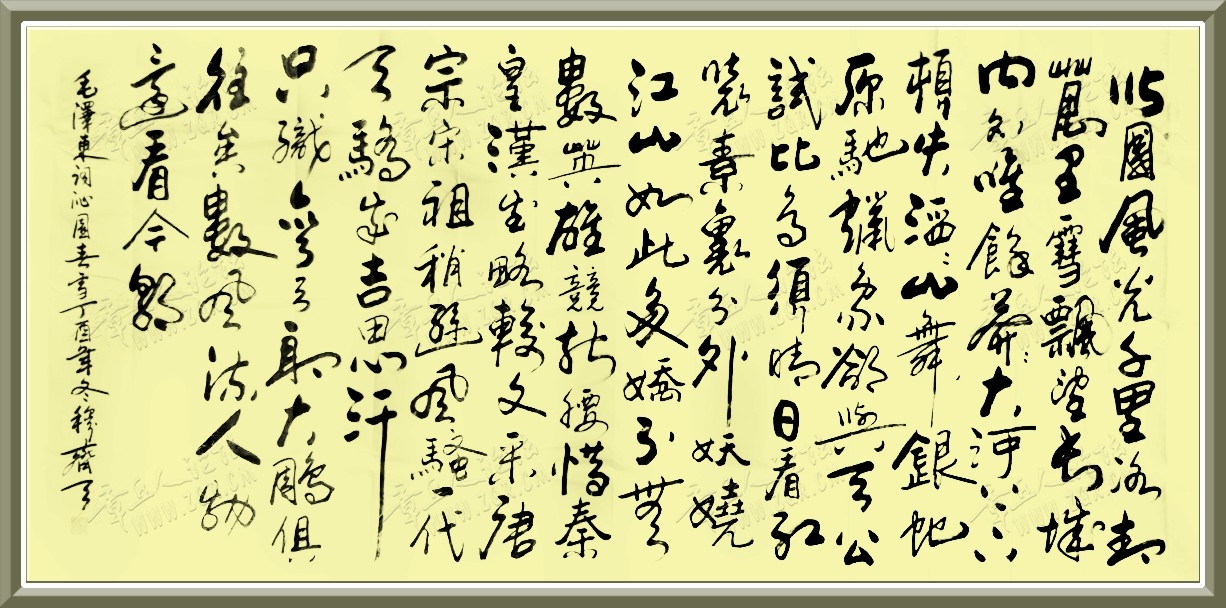 北國風光千里冰封
萬里雪飄望長城
内外唯餘莽々大河上下
頓失滔々山舞銀蛇
原馳蠟象欲與天公
試比高須晴日看紅
裝素裹分外妖嬈
江山如此多嬌引無
數英雄競折腰惜秦
皇漢武略輸文采唐
宗宋祖稍遜風騷一代
天驕成吉思汗
只識彎弓射大鵰俱
往矣數風流人物
還看今朝
毛澤東詞沁園春雪丁酉年冬穆齋